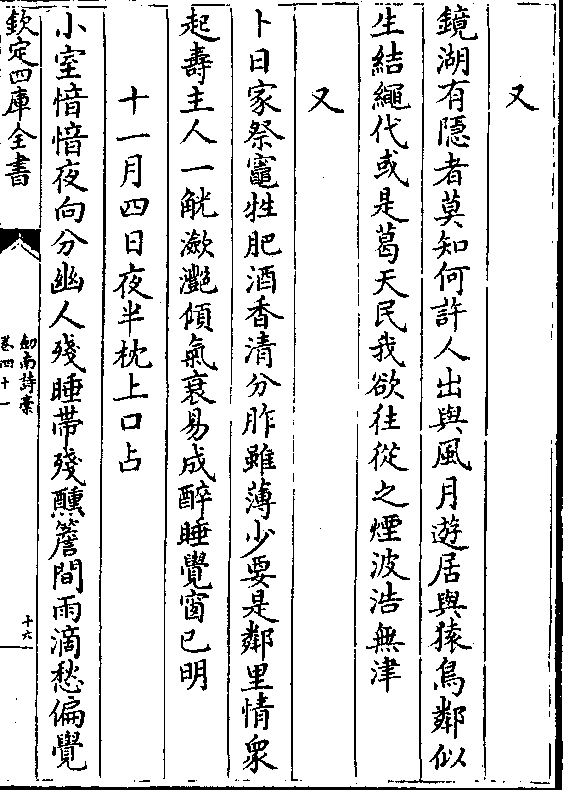 又
鏡湖有隱者莫知何許人出與風月遊居與猿鳥鄰似
生結繩代或是葛天民我欲往從之煙波浩無津
又
卜日家祭竈牲肥酒香清分胙雖薄少要是鄰里情衆
起壽主人一觥瀲灩傾氣衰易成醉睡覺窗已明
十一月四日夜半枕上口占
小室愔愔夜向分幽人殘睡帶殘醺簷間雨滴愁偏覺
欽定四庫全書
劍南詩槀
卷四十一
十六